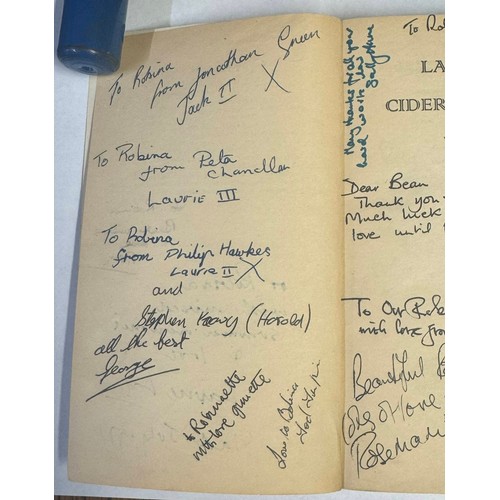 To Robina
from Jonathan Green
Jack II X
To Robina
from Peta
Chandler
Laurie III
To Robina
from Philip Hawkes
Laurie II X
and
Stephen (Harold)
all the best
George
to Robinsette
with love
Love to Robina
Many thanks for all your
hard work love
To Ro
LA
CIDER
Dear Bean
Thank you
Much luck
love until
To Our Rob
with love from
Beautiful
of love
Rosemari